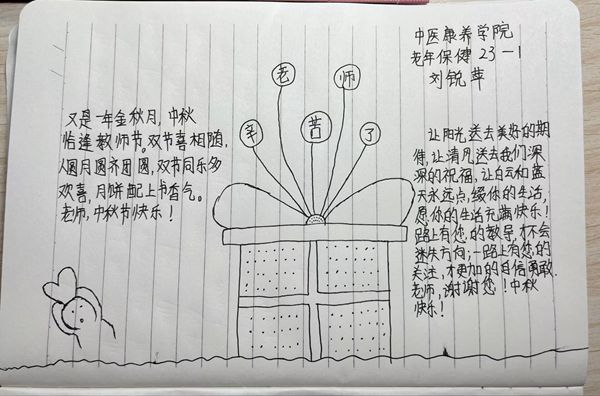 中医康养学院
老年保健23-1
刘锐苹
老师
辛苦了
又是一年金秋月,中秋
恰逢教师节。双节喜相随,
人圆月圆齐团圆,双节同乐多
欢喜,月饼配上书香气。
老师,中秋节快乐!
让阳光,送去美好的期
待,让清风送去我们深
深的祝福,让白云和蓝
天永远点缀你的生活,
愿你的生活充满快乐!
路上有您,的教导,才不会
迷失方向;一路上有您的
关注,才更加的自信勇敢.
老师,谢谢您!中秋
快乐!